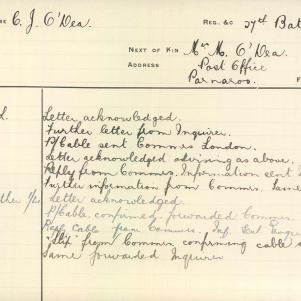 RE C. J. O'Dea. REG. &C 27th Bat
NEXT OF KIN Mr M. O'Dea.
ADDRESS Post Office
Parnaroo.
F
Letter acknowledged.
Further letter from Inquirer.
P/Cable sent Commrs London.
Letter acknowledged advising as above.
Reply from Commrs. Information sent I
Further information from Commrs. Same
ther 1/21 Letter acknowledged.
P/Cable confirmed. forwarded Commrs.
Reply Cable from Commrs. Inf. sent Enquir
"Slip" from Commrs confirming cable s
Same forwarded Inquirer